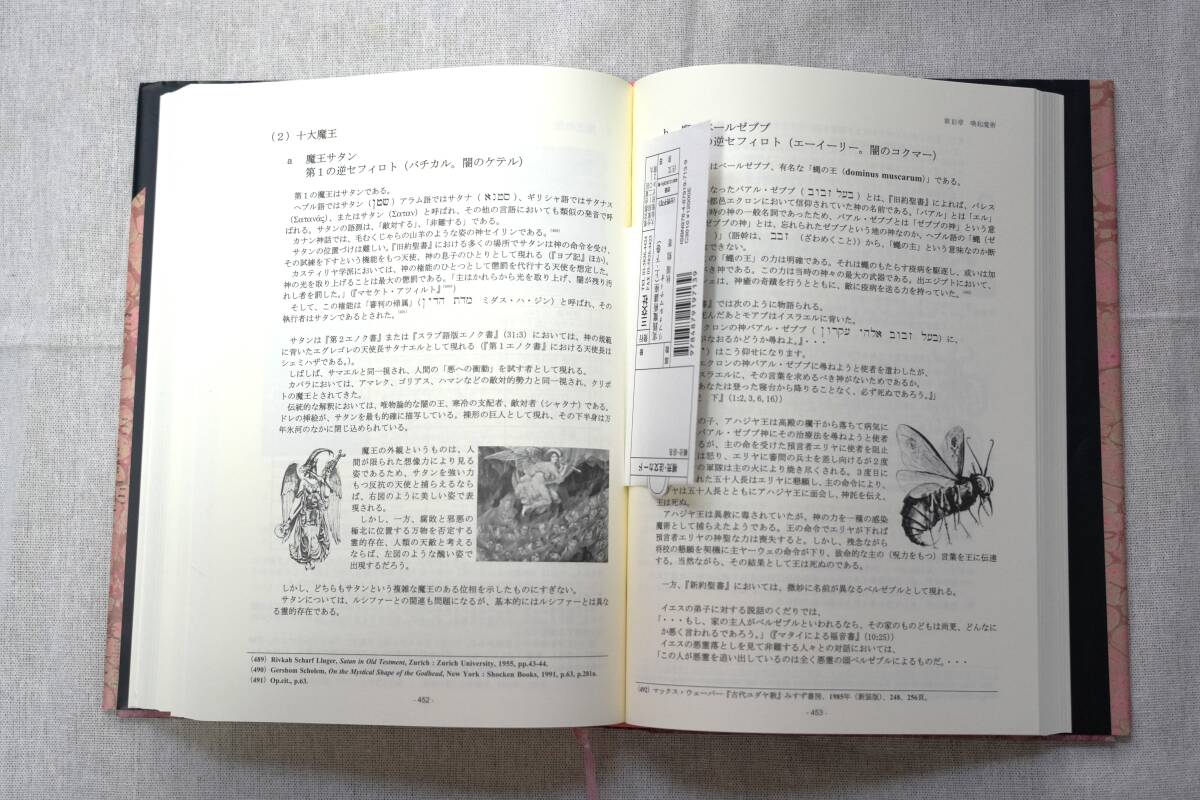 (2) 十大魔王
a 魔王サタン
第1の逆セフィロト (バチカル。闇のケテル)
第1の魔王はサタンである。
ヘブル語ではサタン (שטן) アラム語ではサタナ (סטנא)、ギリシャ語ではサタナス
(Σατανάς)、またはサタン (Σαταν) と呼ばれ、その他の言語においても類似の発音で呼
ばれる。サタンの語源は、「敵対する」、「非難する」である。
カナン神話では、毛むくじゃらの山羊のような姿の神セイリンである。(489)
サタンの位置づけは難しい。『旧約聖書』における多くの場所でサタンは神の命令を受け、
その試練を下すという機能をもつ天使、神の息子のひとりとして現れる (『ヨブ記』ほか)。
カスティリヤ学派においては、神の権能のひとつとして懲罰を代行する天使を想定した。
神の光を取り上げることは最大の懲罰である。「主はかれらから光を取り上げ、闇が残り汚
れし者を罰した。」(『マセケト・アツィルト』(490))
そして、この権能は「審判の傾属」(מדת הדין ミダス・ハ・ジン) と呼ばれ、その
執行者はサタンであるとされた。(491)
サタンは『第2エノク書』または『スラブ語版エノク書』(31:3) においては、神の規範
に背いたエグレゴレの天使長サタナエルとして現れる (『第1エノク書』における天使長は
シェミハザである。)。
しばしば、サマエルと同一視され、人間の「悪への衝動」を試す者として現れる。
カバラにおいては、アマレク、ゴリアス、ハマンなどの敵対的勢力と同一視され、クリポ
トの魔王とされてきた。
伝統的な解釈においては、唯物論的な闇の王、寒冷の支配者、敵対者 (シャタナ) である。
ドレの挿絵が、サタンを最も的確に描写している。裸形の巨人として現れ、その下半身は万
年氷河のなかに閉じ込められている。
魔王の外観というものは、人
間が限られた想像力により見る
姿であるため、サタンを強い力
もつ反抗の天使と捕らえるなら
ば、右図のように美しい姿で表
現される。
しかし、一方、腐敗と邪悪の
極北に位置する万物を否定する
霊的存在、人類の天敵と考える
ならば、左図のような醜い姿で
出現するだろう。
しかし、どちらもサタンという複雑な魔王のある位相を示したものにすぎない。
サタンについては、ルシファーとの関連も問題になるが、基本的にはルシファーとは異な
る霊的存在である。
(489) Rivkah Scharf Linger, Satan in Old Testment, Zurich : Zurich University, 1955, pp.43-44.
(490) Gershom Scholem, On the Mystical Shape of the Godhead, New York : Shocken Books, 1991, p.63, p.281n.
(491) Op.cit., p.63.
- 452 -
喚起魔術
ールゼブブ
の逆セフィロト (エーイーリー。闇のコクマー)
はベールゼブブ、有名な「蠅の王 (dominus muscarum)」である。
なったバアル・ゼブブ (בעל זבוב) とは、『旧約聖書』によれば、パレス
都邑エクロンにおいて信仰されていた神の名前である。「バアル」とは「エル」
時の神の一般名詞であったため、バアル・ゼブブとは「ゼブブの神」という意
ゼブブの神」とは、忘れられたゼブブという地の神なのか、ヘブル語の「蠅 (ゼ
)」(語幹は、זבב (ざわめくこと)) から、「蠅の主」という意味なのか断
はできない。
の「蠅の王」の力は明確である。それは蠅のもたらす疫病を駆逐し、或いは加
べき神である。この力は当時の神々の最大の武器である。出エジプトにおいて、
ェは、神癒の奇蹟を行うとともに、敵に疫病を送る力を持っていた。(492)
書』では次のように物語られる。
死んだあとモアブはイスラエルに背いた。
クロンの神バアル・ゼブブ (בעל זבוב אלהי עקרון) に、
がなおるかどうか尋ねよ。』・・・
) はこう仰せになります。
エクロンの神バアル・ゼブブに尋ねようと使者を遣わしたが、
イスラエルに、その言葉を求めるべき神がないためであるか。
あなたは登った寝台から降りることなく、必ず死ぬであろう。』
下』(1:2, 3, 6, 16))
の子、アハジヤ王は高殿の欄干から落ちて病気に
バアル・ゼブブ神にその治療法を尋ねようと使者
るが、主の命を受けた預言者エリヤに使者を阻止
は怒り、エリヤに審問の兵士を差し向けるが2度
の軍隊は主の火により焼き尽くされる。3度目に
れた五十人長はエリヤに懇願し、主の命により、
リヤは五十人長とともにアハジヤ王に面会し、神託を伝え、
王は死ぬ。
アハジヤ王は異教に毒されていたが、神の力を一種の感染
魔術として捕らえたようである。王の命令でエリヤが下れば
預言者エリヤの神聖な力は喪失すると。しかし、残念ながら
将校の懇願を契機に主ヤーウェの命令が下り、致命的な主の (呪力をもつ) 言葉を王に伝達
する。当然ながら、その結果として王は死ぬのである。
一方、『新約聖書』においては、微妙に名前が異なるベルゼブルとして現れる。
イエスの弟子に対する説話のくだりでは、
「・・・もし、家の主人がベルゼブルといわれるなら、その家のものどもは尚更、どんなに
か悪く言われるであろう。」(『マタイによる福音書』(10:25))
イエスの悪霊落としを見て非難する人々との対話においては、
「この人が悪霊を追い出しているのは全く悪霊の頭ベルゼブルによるものだ。・・・
(492) マックス・ウェーバー『古代ユダヤ教』みすず書房、1985年 (新装版)、248、256頁。
- 453 -
補充・注文カード
9784879197139